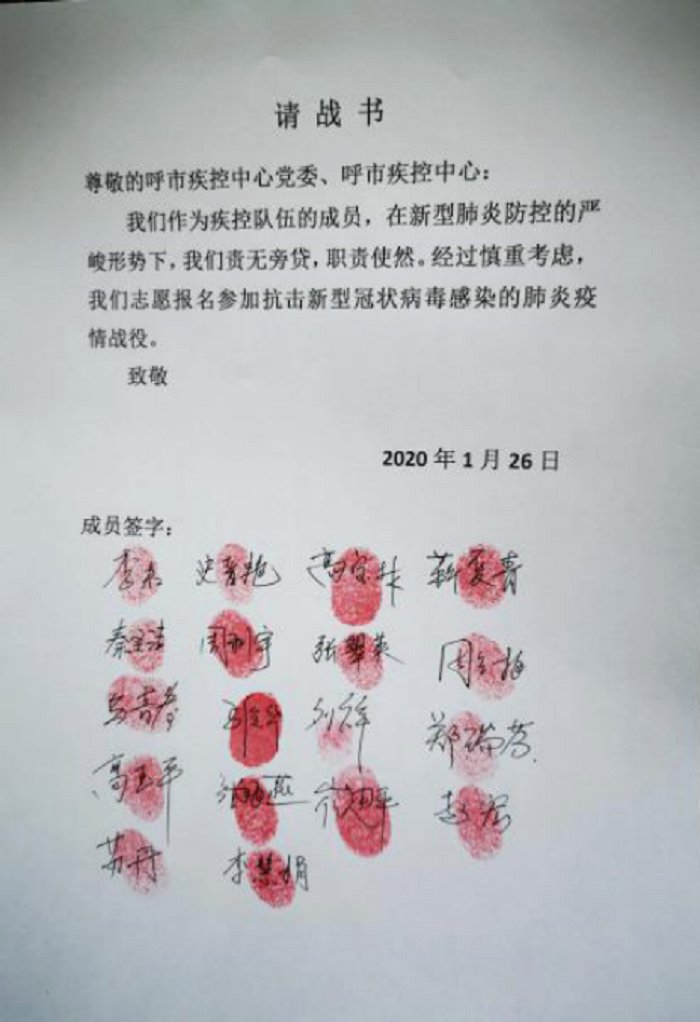 请战书
尊敬的呼市疾控中心党委、呼市疾控中心：
我们作为疾控队伍的成员，在新型肺炎防控的严
峻形势下，我们责无旁贷，职责使然。经过慎重考虑，
我们志愿报名参加抗击新型冠状病毒感染的肺炎疫
情战役。
致敬
2020 年 1 月 26 日
成员签字：
史 高 靳夏青
秦 周 宇 张翠英 周 梅
马青 刘祥 郑瑞芬
高玉平 张 燕 平 赵
苏丹 李慧娟